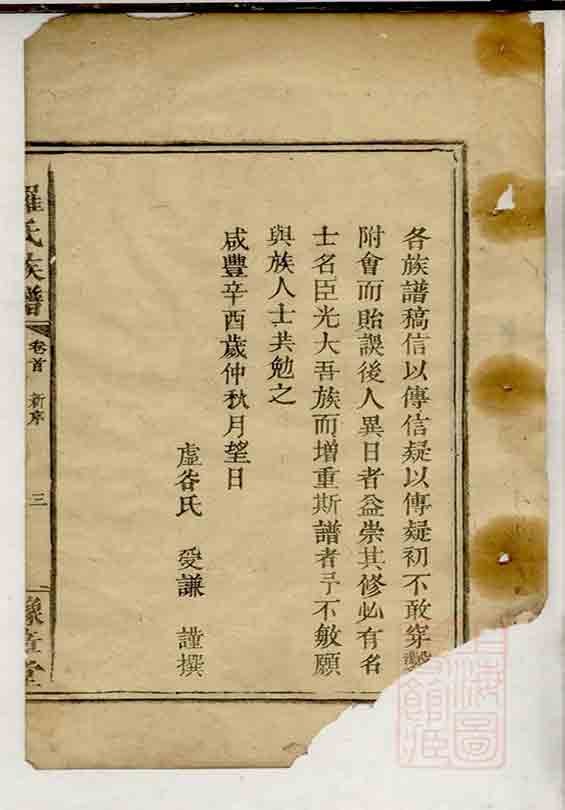 各族譜稿信以傳信疑以傳疑初不敢穿鑿
附會而貽誤後人異日者益崇其修必有名
士名臣光大吾族而增重斯譜者予不敏願
與族人士共勉之
咸豐辛酉歲仲秋月望日
虛谷氏 受謙 謹撰
羅氏族譜
卷首 新序
三
豫章堂
海圖